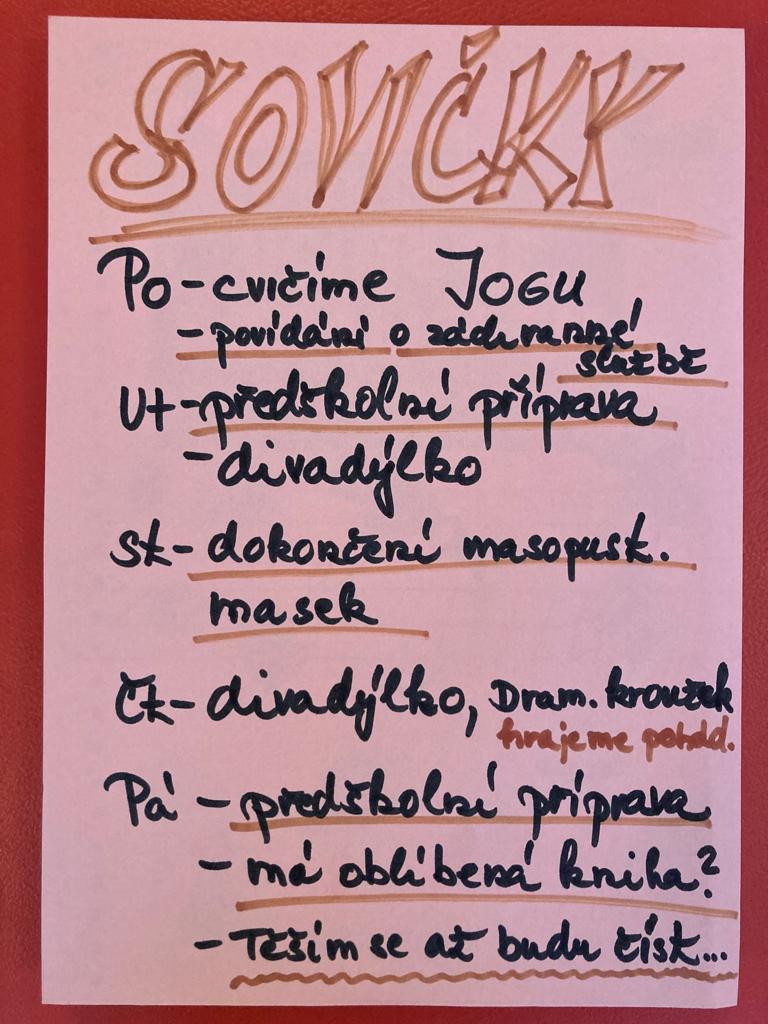 SOVIČKY
Po - cvičíme JOGU
- povídání o záchranné
službě
Út - předškolní příprava
- divadýlko
St - dokončení masopust.
masek
Čt - divadýlko, Dram. kroužek
hrajeme pohád.
Pá - předškolní příprava
- má oblíbená kniha?
- Těším se až budu číst...